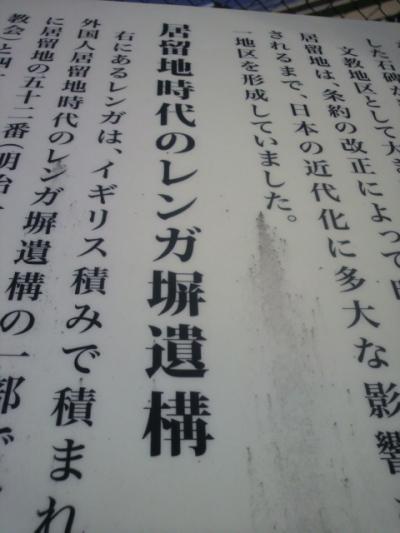 した石碑が
文教地区として大
居留地は、条約の改正によって
されるまで、日本の近代化に多大な影響
一地区を形成していました。
居留地時代のレンガ塀遺構
右にあるレンガは、イギリス積みで積まれ
外国人居留地時代のレンガ塀遺構の一部で
に居留地の五十二番(明治
教会)と四十